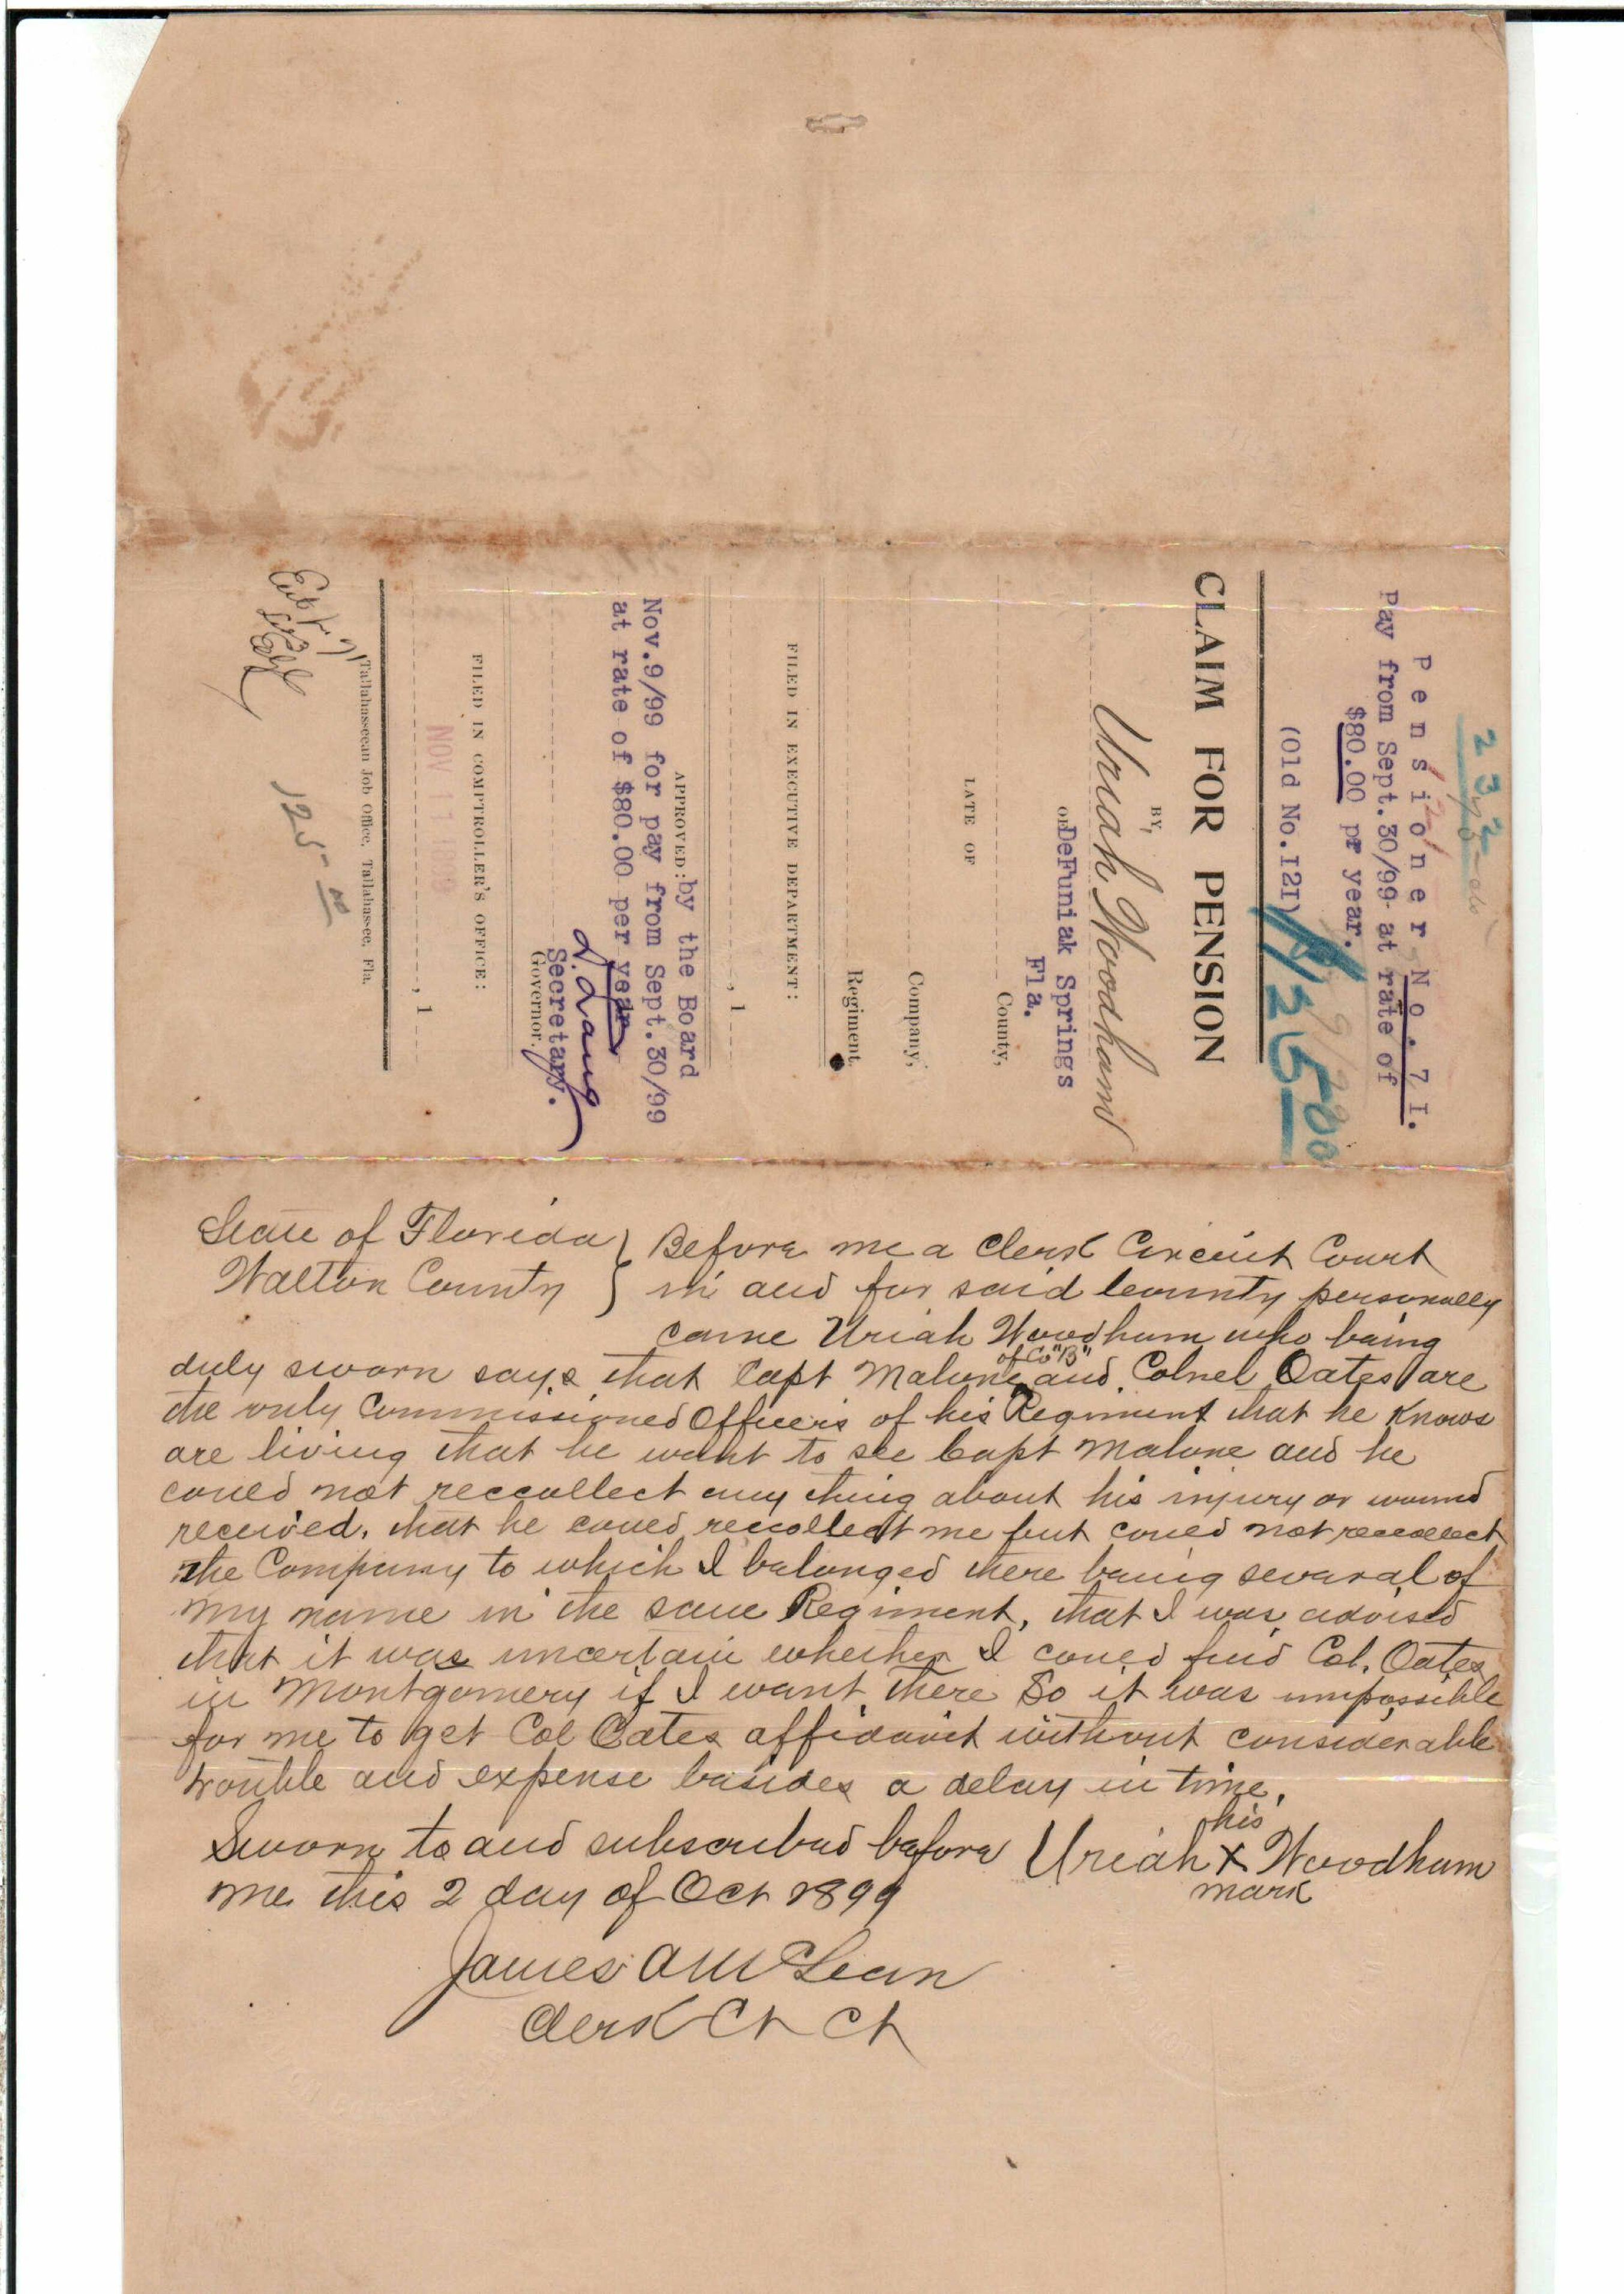 Pensioner No. 7I.
Pay from Sept.30/99 at rate of
$80.00 pr year.
(Old No.I2I)
CLAIM FOR PENSION
BY,
Uriah Woodham
OF DeFuniak Springs
Fla.
County,
LATE OF
Company,
Regiment.
FILED IN EXECUTIVE DEPARTMENT:
, 1
APPROVED: by the Board
Nov.9/99 for pay from Sept.30/99
at rate of $80.00 per year
Secretary.
Governor.
FILED IN COMPTROLLER'S OFFICE:
NOV 11 1899
, 1
Tallahasseean Job Office, Tallahassee, Fla.
125 00
State of Florida } Before me a Clerk Circuit Court
Walton County } in and for said County personally
came Uriah Woodham who being
duly sworn says that Capt Malone of Co "B" and Colnel Oates are
the only Commissioned Officers of his Regiment that he Knows
are living that he want to see Capt Malone and he
coued not reccollect any thing about his injury or wound
received, that he coued reccollect me but coued not reccollect
the Company to which I belonged there being several of
my name in the same Regiment, that I was advised
that it was uncertain whether I coued find Col. Oates
in Montgomery if I want there So it was impossible
for me to get Col Oates affidavit without considerable
trouble and expense besides a delay in time.
Sworn to and subscribed before Uriah his X mark Woodham
me this 2 day of Oct 1899
James A McLean
Clerk Ct Ct